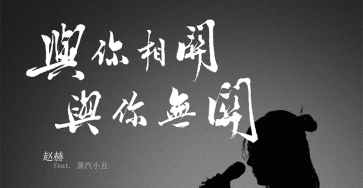 與你相關
與你無關
赵赫
feat. 蒸汽小丑